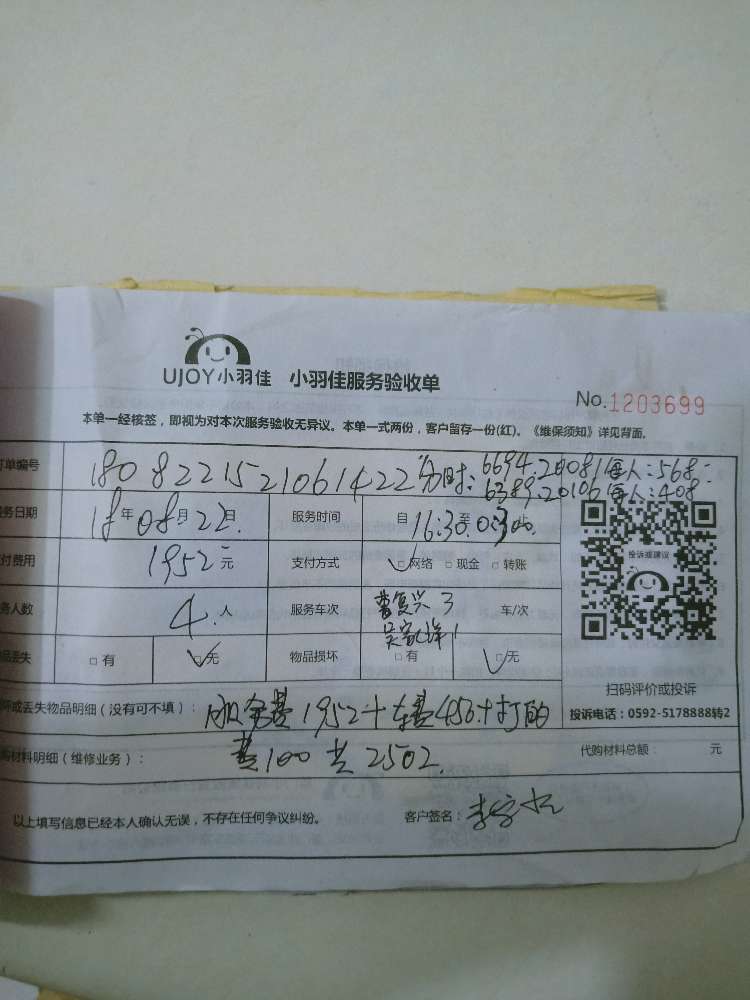 UJOY小羽佳 小羽佳服务验收单
No.1203699
本单一经核签，即视为对本次服务验收无异议。本单一式两份，客户留存一份(红)。《维保须知》详见背面。
单编号 1808221521061422 分时: 6694.20081每人:568
6389.20106每人:408
务日期 18年08月22日 服务时间 自16:30至 止
付费用 1952元 支付方式 □网络 □现金 □转账
投诉或建议
务人数 4人 服务车次 曹复兴3 车/次
品丢失 □有 □无 物品损坏 □有 □无
扫码评价或投诉
坏或丢失物品明细（没有可不填）： 服务费1952+车费450+打的
投诉电话：0592-5178888转2
购材料明细（维修业务）： 费100共2502. 代购材料总额： 元
以上填写信息已经本人确认无误，不存在任何争议纠纷。 客户签名：